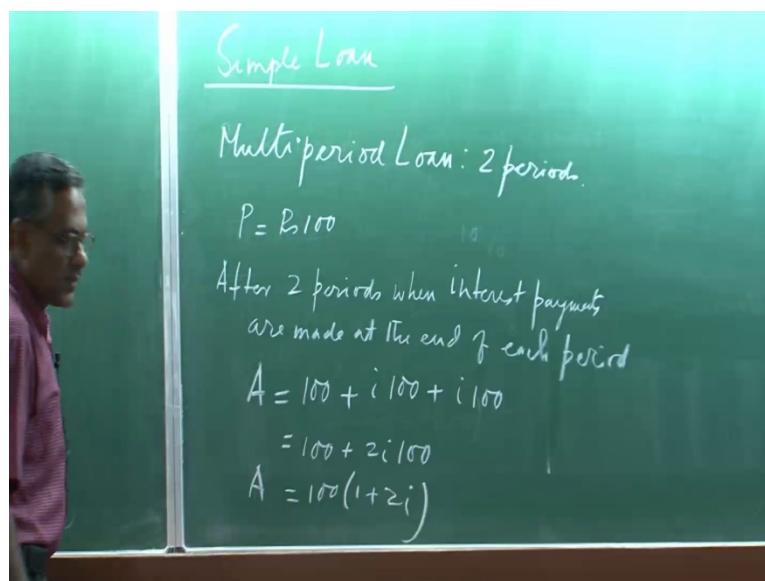 Simple Loan
Multiperiod Loan: 2 periods.
P = Rs 100
After 2 periods when interest payments
are made at the end of each period
A = 100 + i 100 + i 100
= 100 + 2i 100
A = 100(1+2i)